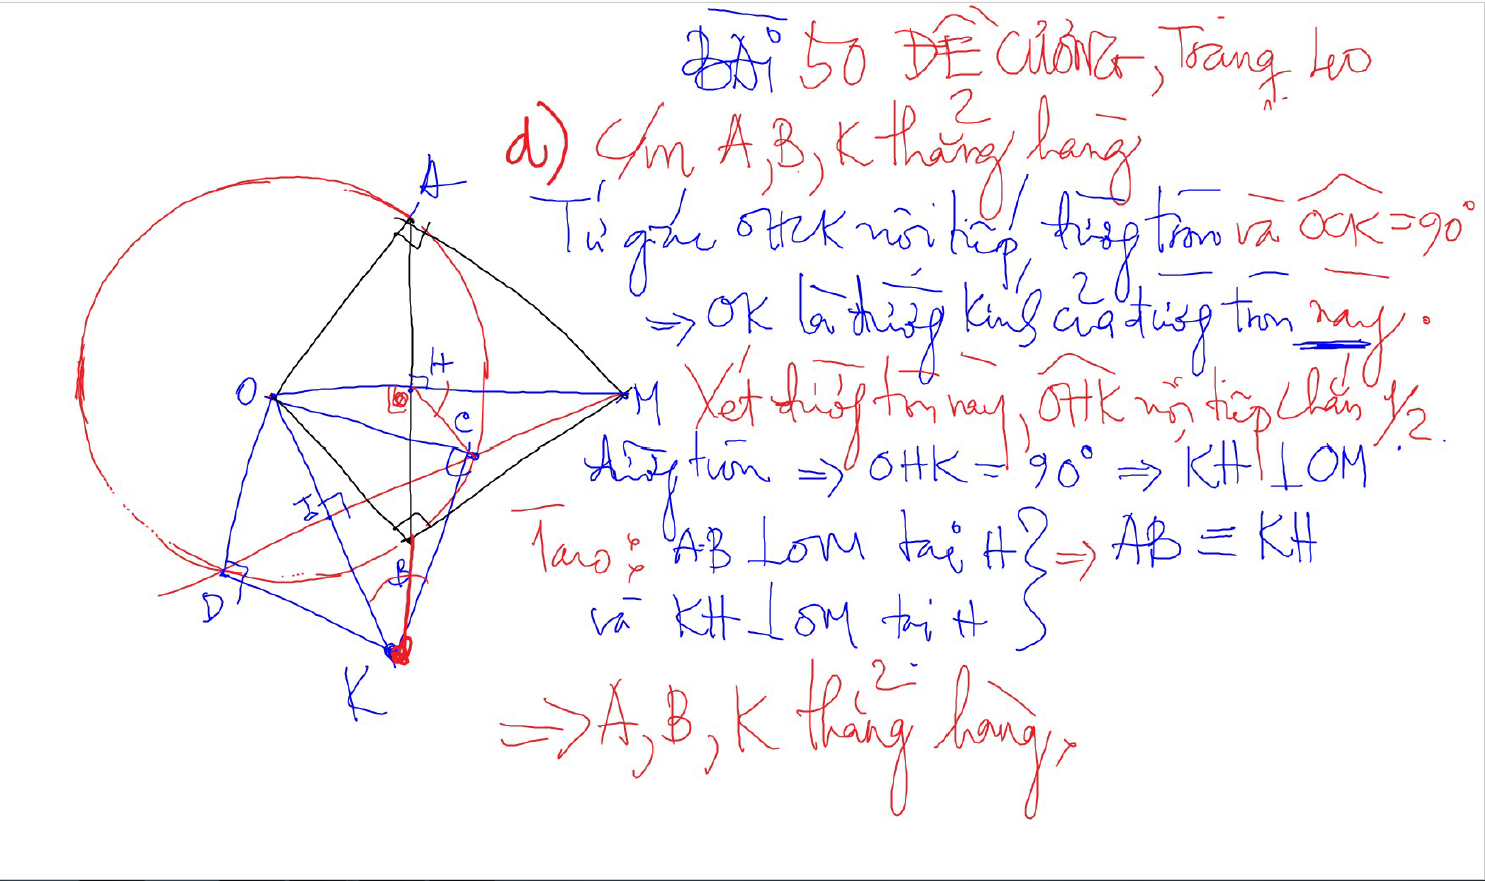 BÀI 50 ĐỀ CƯƠNG, Trang
d) C/m A, B, K thẳng hàng
Tứ giác OHCK nội tiếp đường tròn và OCK = 90°
=> OK là đường kính của đường tròn này.
Xét đường tròn này, OHK nội tiếp chắn 1/2
đường tròn => OHK = 90° => KH ⊥ OM
Ta có: AB ⊥ OM tại H } => AB ≡ KH
và KH ⊥ OM tại H
=> A, B, K thẳng hàng.
A
H
O
M
C
I
B
D
K